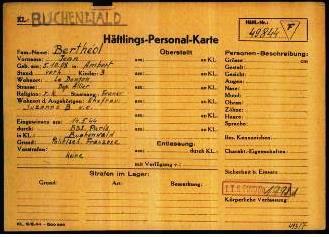 KL: BUCHENWALD
Häftl.-Nr.:
49844
F
Häftlings-Personal-Karte
Fam.-Name: Bertheol
Vorname: Jean
Geb. am: 5.10.08 in Ambert
Stand: verh. Kinder: 3
Wohnort:
Strasse: Dep. Allier
Religion: r.k. Staatsang.: Franz.
Wohnort d. Angehörigen: Ehefrau:
Suzanne B. w.o.
Eingewiesen am: 14.5.44
durch: BdS. Paris
in KL.: Buchenwald
Grund: Politisch. Franzose
Vorstrafen: keine
Überstellt
am: an KL.
am: an KL.
am: an KL.
am: an KL.
am: an KL.
am: an KL.
Entlassung:
am: durch KL.:
mit Verfügung v.:
Personen-Beschreibung:
Grösse:
Gestalt:
Gesicht:
Augen:
Nase:
Mund:
Ohren:
Zähne:
Haare:
Sprache:
Bes. Kennzeichen:
Charakt.-Eigenschaften:
Sicherheit b. Einsatz:
Körperliche Verfassung:
Strafen im Lager:
Grund: Art: Bemerkung: